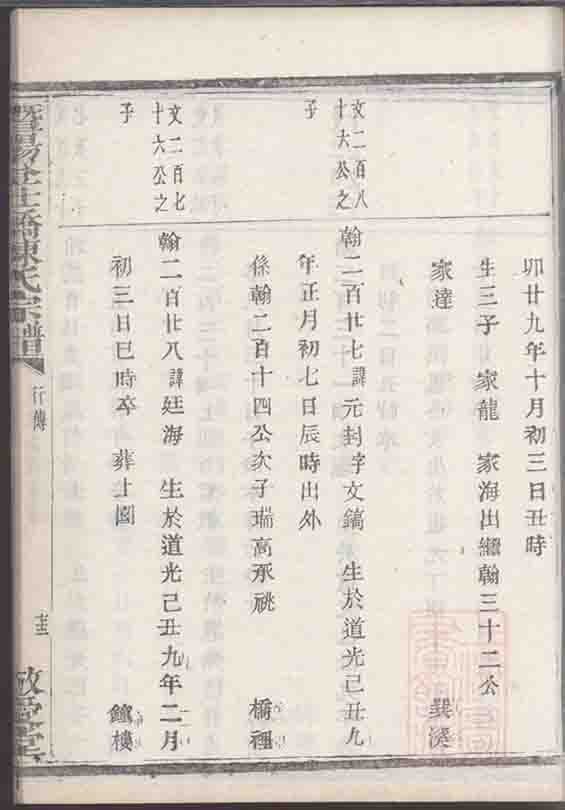 卯廿九年十月初三日丑時
生三子 家龍 家海出繼翰三十二公
家達
文二百八
十六公之
子
翰二百廿七諱元封字文鎬 生於道光己丑九
年正月初七日辰時出外
係翰二百十四公次子瑞高承祧 橋裡
文二百七
十六公之
子
翰二百廿八諱廷海 生於道光己丑九年二月
初三日巳時卒 葬上園 鐘樓
陳氏宗譜
行傳